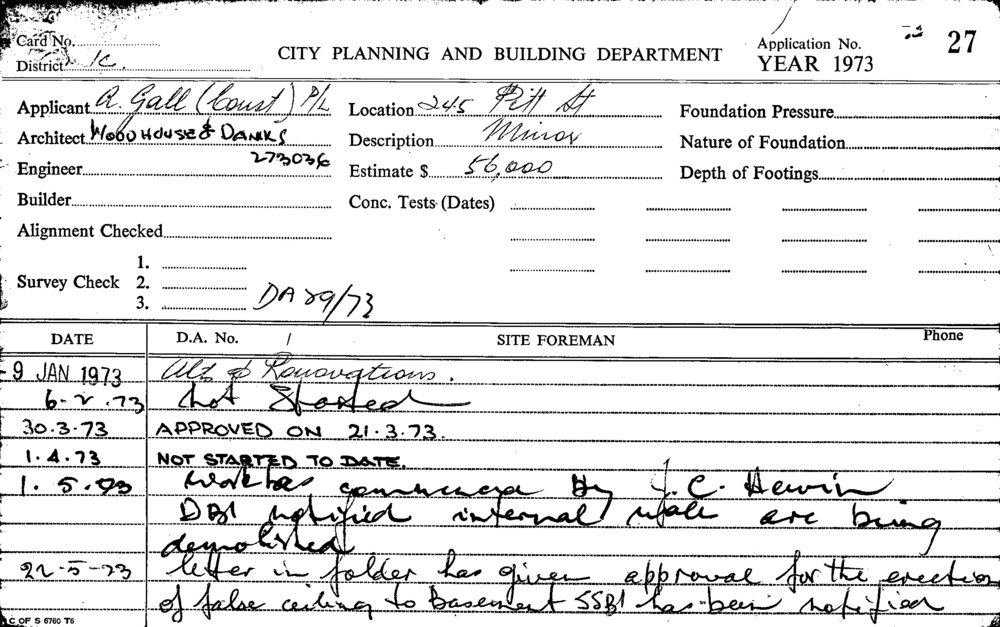 Card No.
District 1C
CITY PLANNING AND BUILDING DEPARTMENT
Application No. 27
YEAR 1973
Applicant A. Gall (Const) P/L
Location 245 Pitt St
Foundation Pressure
Architect WOODHOUSE & DANKS
Description Minor
Nature of Foundation
273036
Engineer
Estimate $ 56,000
Depth of Footings
Builder
Conc. Tests (Dates)
Alignment Checked
Survey Check 1.
2.
3.
DA 29/73
DATE D.A. No. / SITE FOREMAN Phone
9 JAN 1973 Alts & Renovations.
6-2.73 Not Started
30.3.73 APPROVED ON 21.3.73.
1.4.73 NOT STARTED TO DATE.
1.5.73 Work has commenced By J.C.
DBI notified internal walls are being
demolished
22-5-73 letter in folder has given approval for the erection
of false ceiling to Basement SSBI has been notified
C OF S 6760 T6